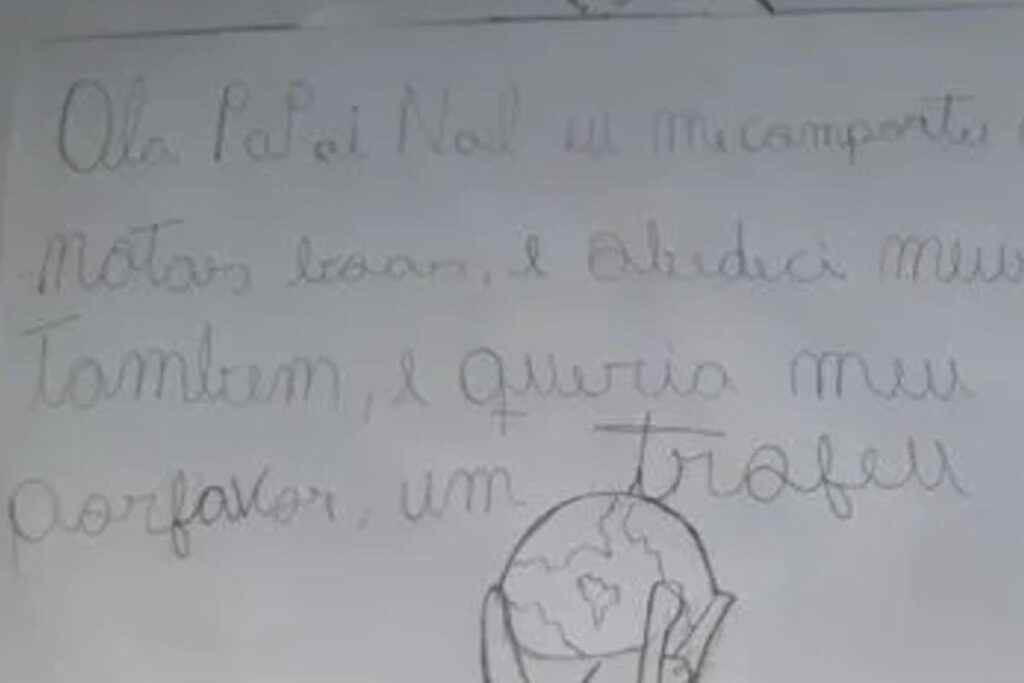 Ola PaPai Noel eu me comportei
notas boas, e obedeci meus
Tambem, e queria meu
porfavor, um trofeu